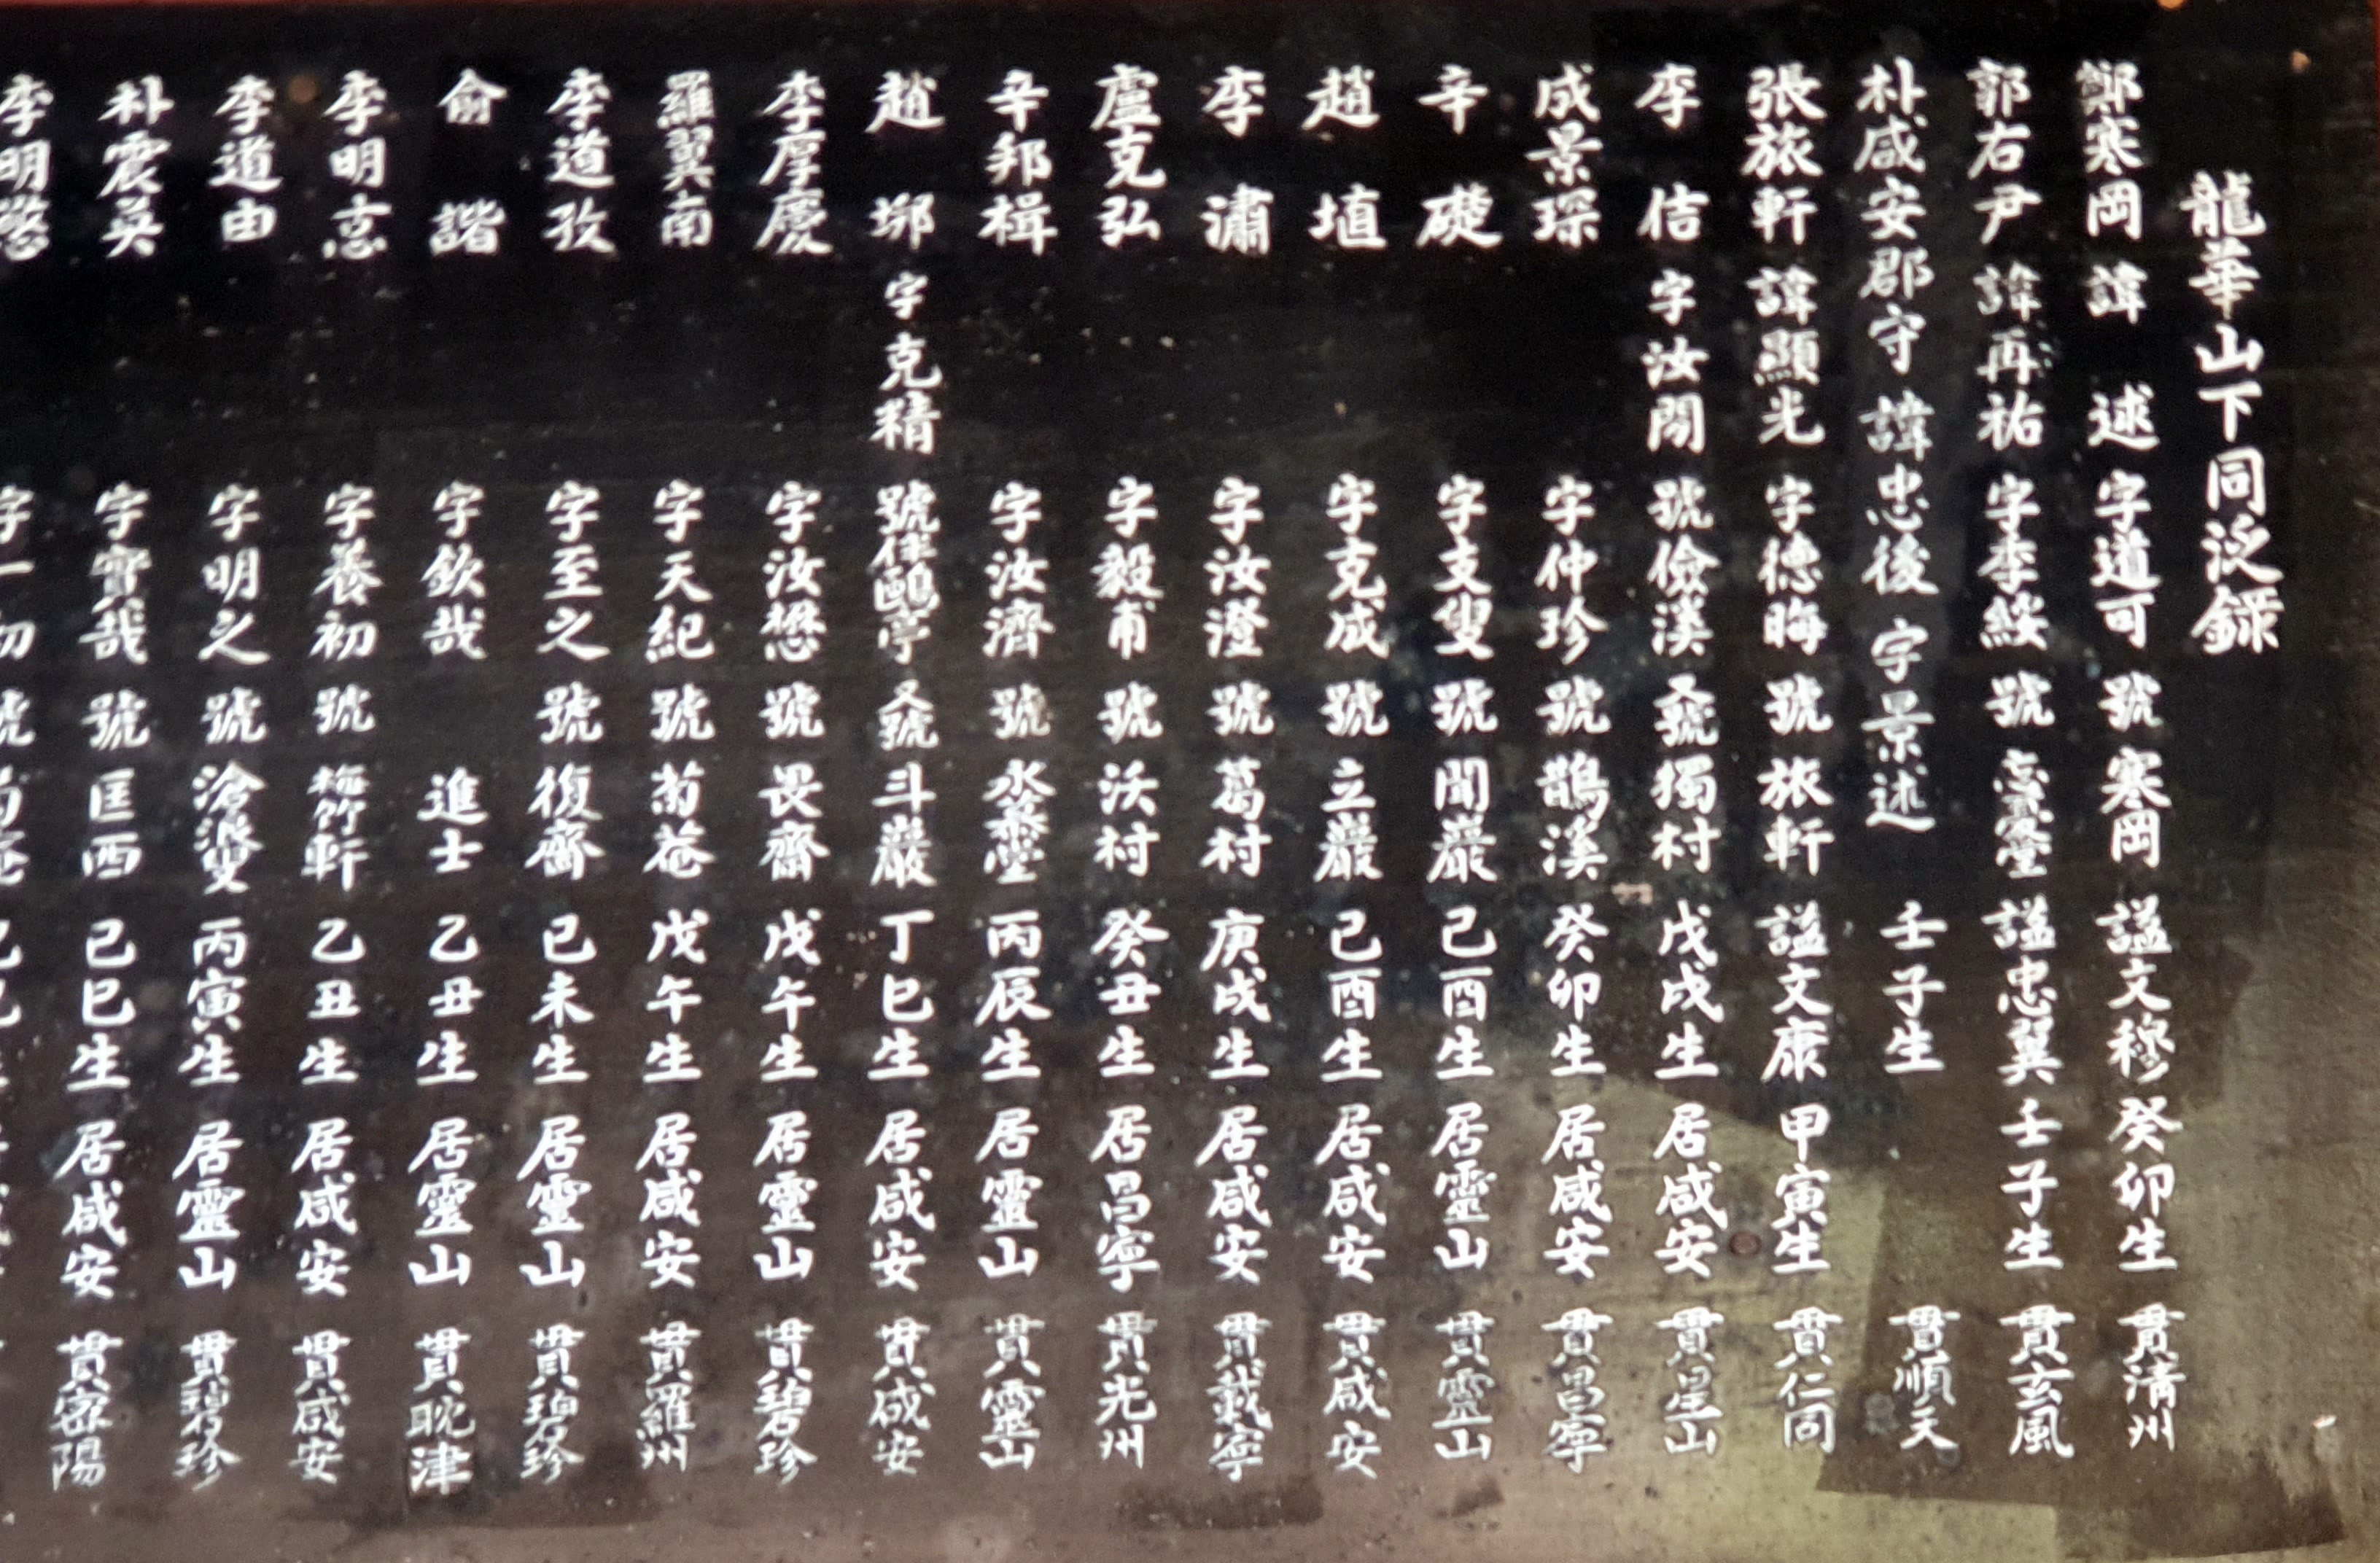 龍華山下同泛錄
鄭寒岡 諱 逑 字道可 號 寒岡 諡文穆 癸卯生 貫淸州
郭右尹 諱再祐 字季綏 號 諡忠翼 壬子生 貫玄風
朴咸安郡守 諱忠後 字景述 壬子生 貫順天
張旅軒 諱顯光 字德晦 號 旅軒 諡文康 甲寅生 貫仁同
李 佶 字汝閑 號儉溪 又號獨村 戊戌生 居咸安 貫星山
成景琛 字仲珍 號 鵲溪 癸卯生 居咸安 貫昌寧
辛 礎 字支叟 號 聞巖 己酉生 居靈山 貫靈山
趙 埴 字克成 號 立巖 己酉生 居咸安 貫咸安
李 潚 字汝澄 號 葛村 庚戌生 居咸安 貫載寧
盧克弘 字毅甫 號 沃村 癸丑生 居昌寧 貫光州
辛邦楫 字汝濟 號 丙辰生 居靈山 貫靈山
趙 垹 字克精 號伴鷗亭 又號 斗巖 丁巳生 居咸安 貫咸安
李厚慶 字汝懋 號 畏齋 戊午生 居靈山 貫碧珍
羅翼南 字天紀 號 菊菴 戊午生 居咸安 貫羅州
李道孜 字至之 號 復齋 己未生 居靈山 貫碧珍
俞 諧 字欽哉 進士 乙丑生 居靈山 貫
李明怘 字養初 號 梅竹軒 乙丑生 居咸安 貫咸安
李道由 字明之 號 滄浪叟 丙寅生 居靈山 貫碧珍
朴震英 字實哉 號 匡西 己巳生 居咸安 貫密陽
李明